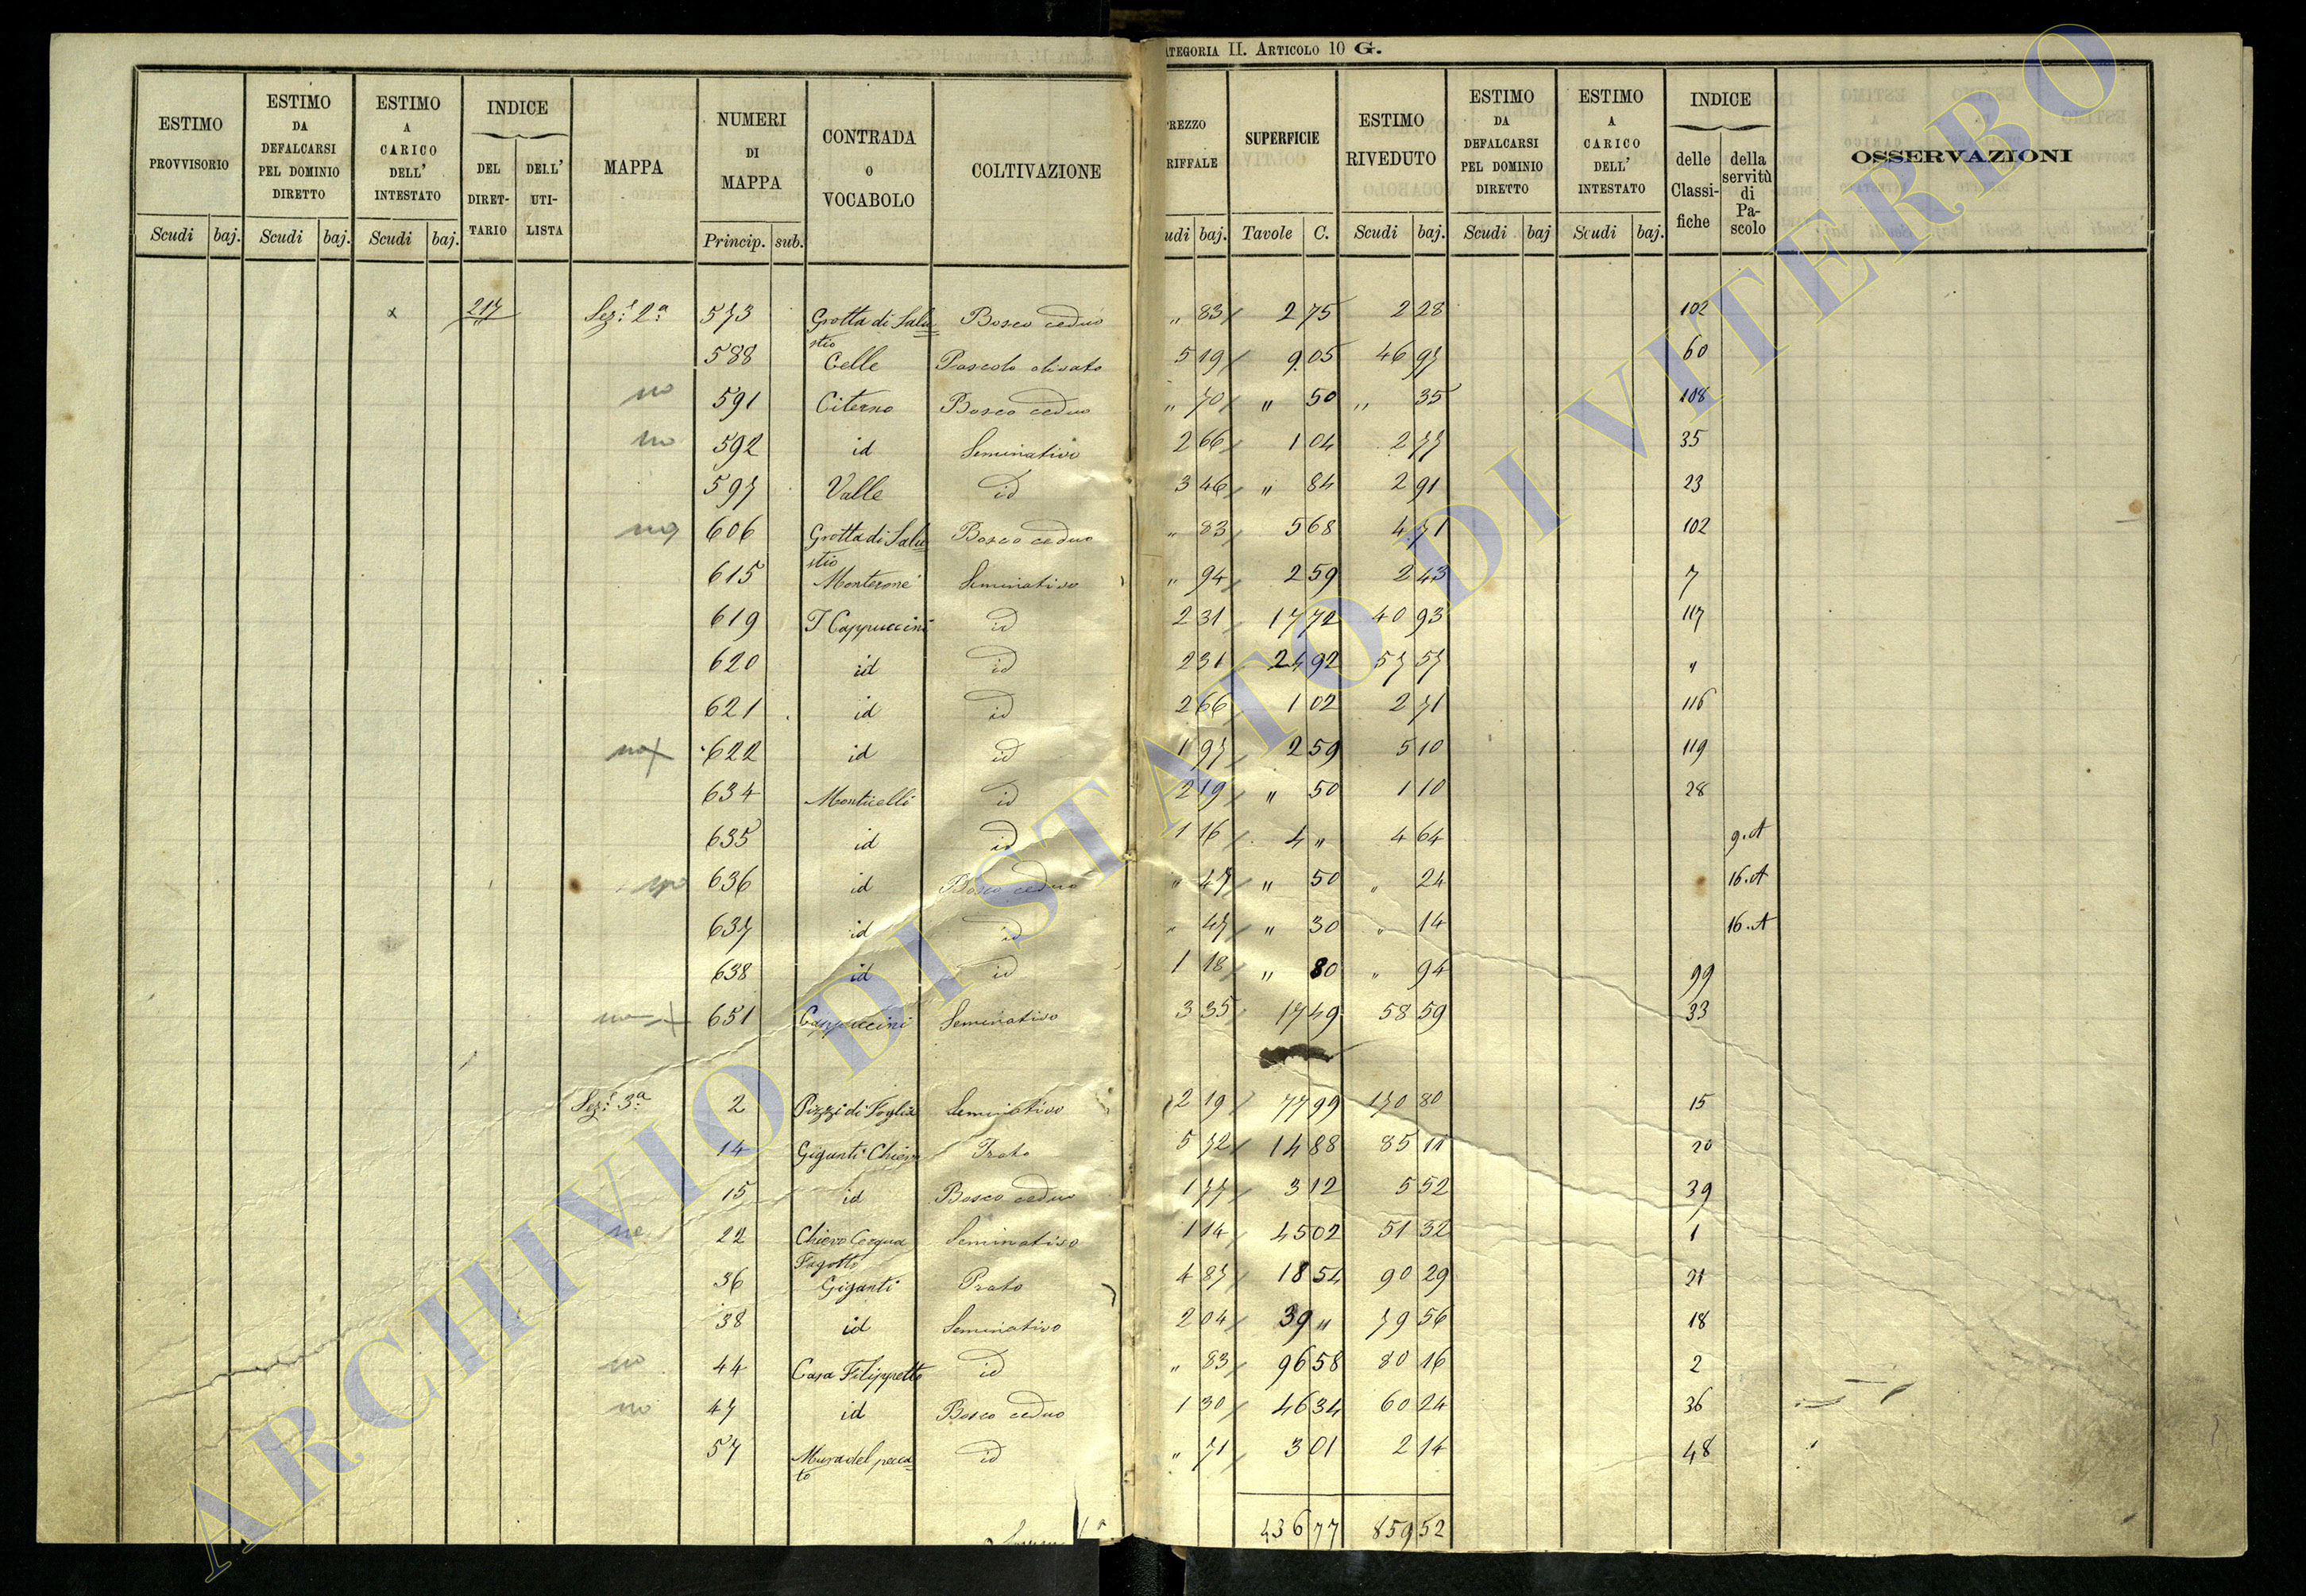 ATEGORIA II. ARTICOLO 10 G.
ESTIMO PROVVISORIO | ESTIMO DA DEFALCARSI PEL DOMINIO DIRETTO | ESTIMO A CARICO DELL' INTESTATO | INDICE DEL DIRETTARIO | DELL' UTILISTA | MAPPA | NUMERI DI MAPPA | CONTRADA O VOCABOLO | COLTIVAZIONE | REZZO RIFFALE | SUPERFICIE | ESTIMO RIVEDUTO | ESTIMO DA DEFALCARSI PEL DOMINIO DIRETTO | ESTIMO A CARICO DELL' INTESTATO | INDICE delle Classifiche | della servitù di Pascolo | OSSERVAZIONI
Scudi baj. Scudi baj. Scudi baj. Princip. sub. udi baj. Tavole C. Scudi baj. Scudi baj Scudi baj.
x 217 Sez: 2a 573 Grotta di Salu=stio Bosco ceduo " 83 2 75 2 28 102
588 Celle Pascolo olivato 5 19 9 05 46 97 60
no 591 Citerno Bosco ceduo " 70 " 50 " 35 108
no 592 id Seminativo 2 66 1 04 2 77 35
597 Valle id 3 46 " 84 2 91 23
no 606 Grotta di Salu=stio Bosco ceduo " 83 5 68 4 71 102
615 Monterone Seminativo " 94 2 59 2 43 7
619 I Cappuccini id 2 31 17 72 40 93 117
620 id id 2 31 24 92 57 57 "
621 id id 2 66 1 02 2 71 116
no x 622 id id 1 97 2 59 5 10 119
634 Monticelli id 2 19 " 50 1 10 28
635 id id 1 16 4 " 4 64 9.A
no 636 id Bosco ceduo " 47 " 50 " 24 16.A
637 id id " 47 " 30 " 14 16.A
638 id id 1 18 " 80 " 94 99
no x 651 Cappuccini Seminativo 3 35 17 49 58 59 33
Sez: 3a 2 Pizzi di Foglia Seminativo 2 19 77 99 170 80 15
14 Giganti Chiesa Prato 5 72 14 88 85 11 20
15 id Bosco ceduo 1 77 3 12 5 52 39
no 22 Cerqua Fagotto Seminativo 1 14 45 02 51 32 1
36 Giganti Prato 4 87 18 54 90 29 21
38 id Seminativo 2 04 39 " 79 56 18
no 44 Casa Filippetto id " 83 96 58 80 16 2
no 47 id Bosco ceduo 1 30 46 34 60 24 36
57 Mura del pecca=to id " 71 3 01 2 14 48
436 77 859 52
ARCHIVIO DI STATO DI VITERBO